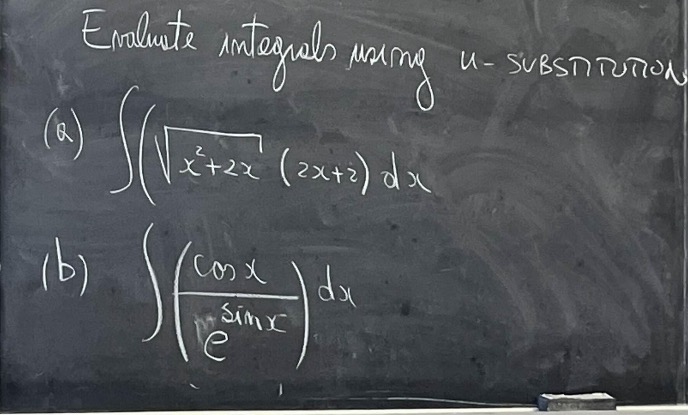 Evaluate integrals using u-SUBSTITUTION
(a) ∫(√(x²+2x) (2x+2) dx
(b) ∫(cos x / e^(sin x)) dx